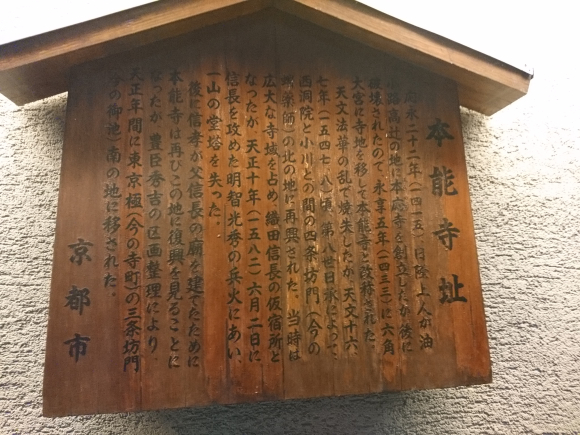 本能寺址
応永二十二年(一四一五)日隆上人が油
小路高辻の地に本応寺を創立したが後に
破壊されたので永享五年(一四三三)に六角
大宮に寺地を移して本能寺と改称された。
天文法華の乱で焼失したが天文十六、
七年(一五四七、八)頃、第八世日承によって、
西洞院と小川との間の四条坊門(今の
蛸薬師)の北の地に再興された。当時は
広大な寺域を占め織田信長の仮宿所と
なったが天正十年(一五八二)六月二日に
信長を攻めた明智光秀の兵火にあい、
一山の堂塔を失った。
後に信孝が父信長の廟を建てたために
本能寺は再びこの地に復興を見ることに
なったが豊臣秀吉の区画整理により、
天正年間に東京極(今の寺町)の三条坊門
(今の御池)南の地に移された。
京都市